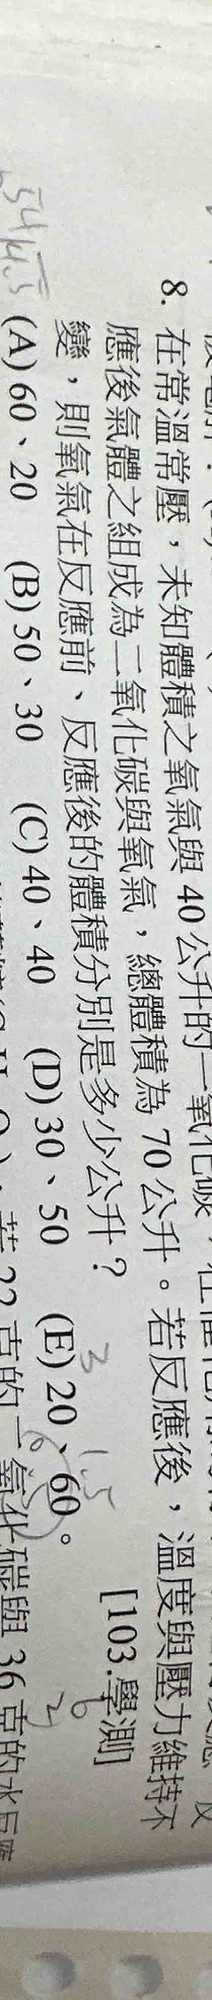 8. 在常溫常壓，未知體積之氧氣與 40 公升的一氧化碳，在催化
應後氣體之組成為二氧化碳與氧氣，總體積為 70 公升。若反應後，溫度與壓力維持不
變，則氧氣在反應前、反應後的體積分別是多少公升？ [103.學測]
(A) 60、20 (B) 50、30 (C) 40、40 (D) 30、50 (E) 20、60。
若 22 克的二氧化碳與 36 克的水反應